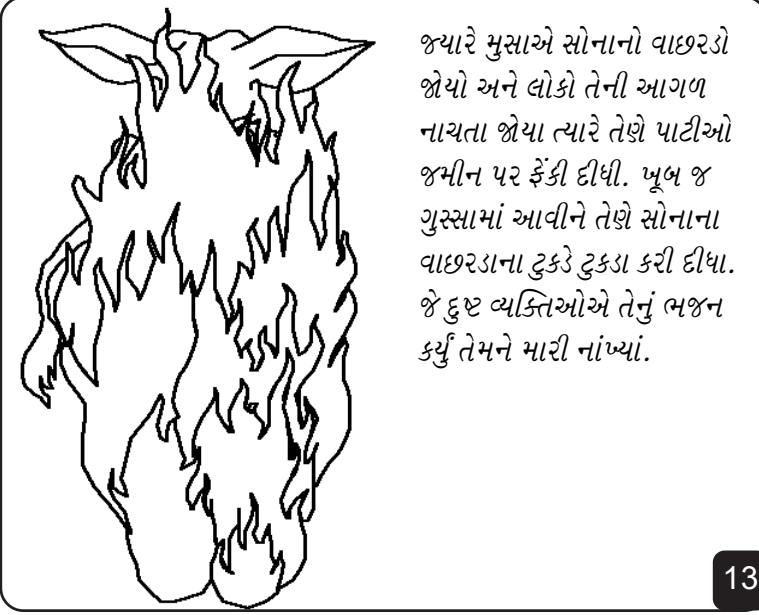 જ્યારે મુસાએ સોનાનો વાછરડો
જોયો અને લોકો તેની આગળ
નાચતા જોયા ત્યારે તેણે પાટીઓ
જમીન પર ફેંકી દીધી. ખૂબ જ
ગુસ્સામાં આવીને તેણે સોનાના
વાછરડાના ટુકડે ટુકડા કરી દીધા.
જે દુષ્ટ વ્યક્તિઓએ તેનું ભજન
કર્યું તેમને મારી નાંખ્યાં.
13